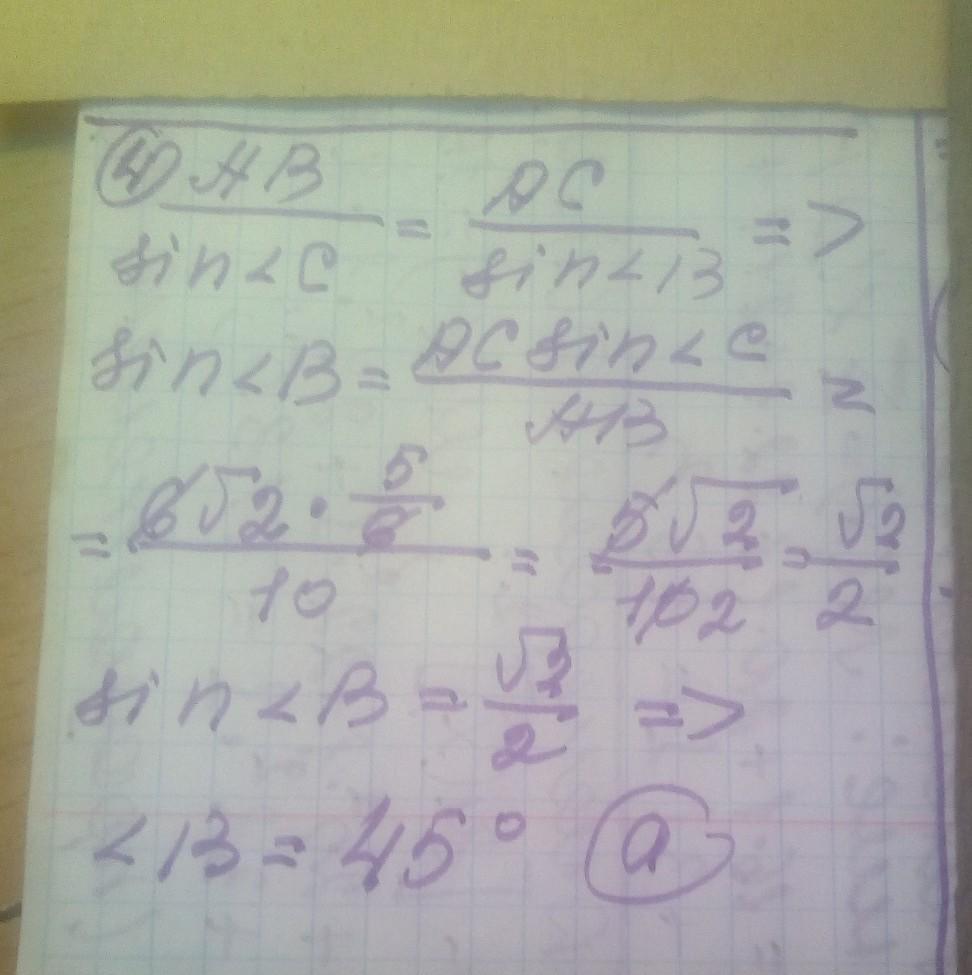 ④ AB/sin<C = AC/sin<B =>
sin<B = AC sin<C/AB =
= 6√2 · 5/6/10 = 5√2/10 2 = √2/2
sin<B = √2/2 =>
<B = 45° a